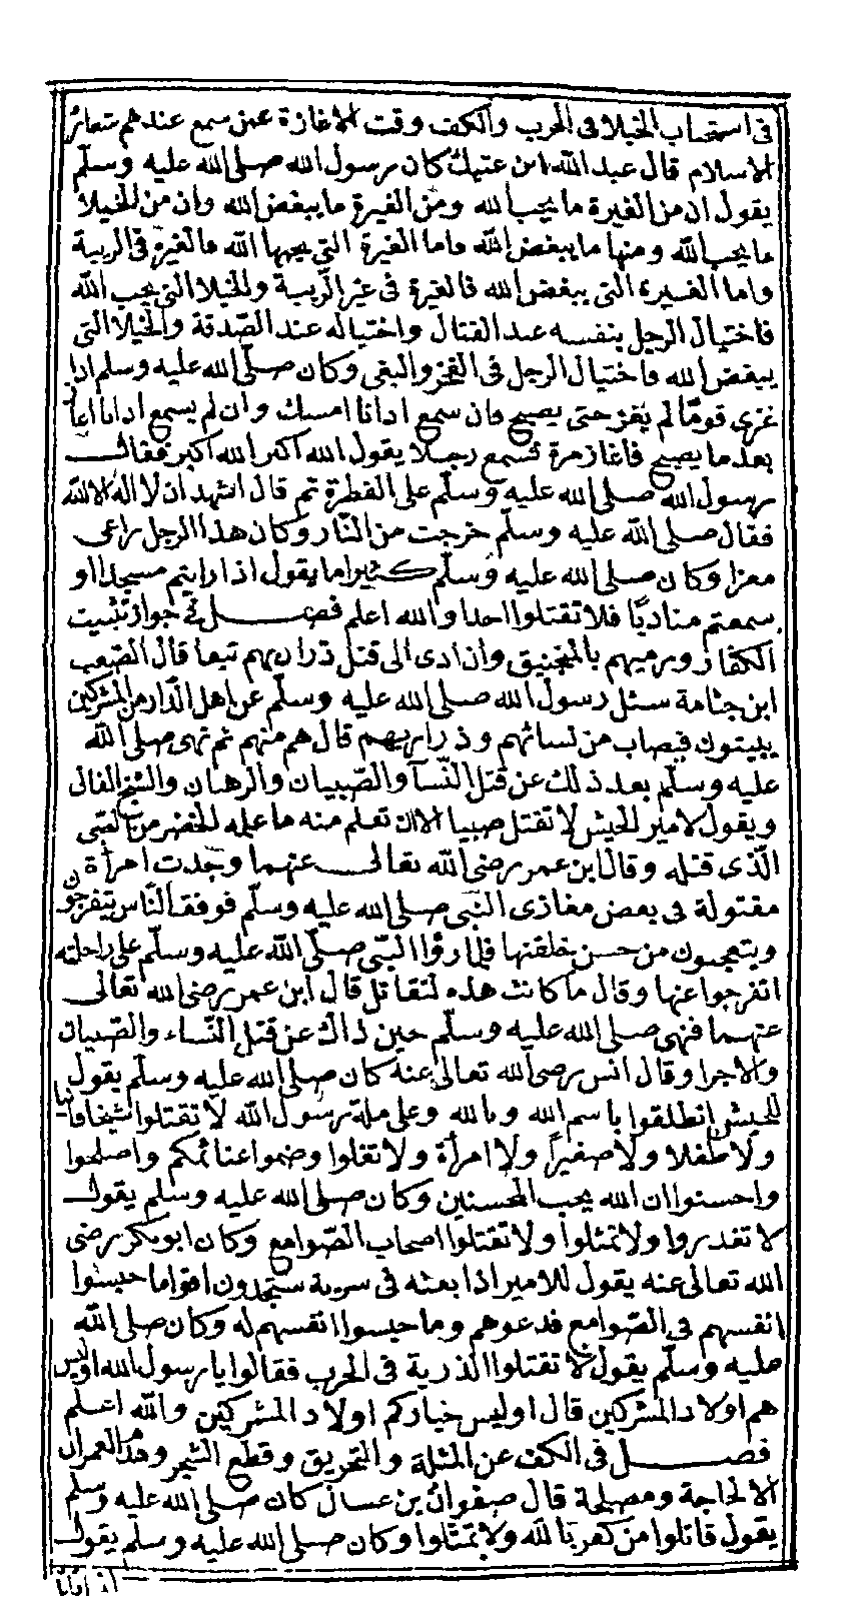 فى استحباب الخيلا فى الحرب والكف وقت الاغارة عمن سمع عندهم شعائر
الاسلام قال عبد الله ابن عتيك كان رسول الله صلى الله عليه وسلم
يقول ان من الغيرة ما يحب الله ومن الغيرة ما يبغض الله وان من الخيلا
ما يحب الله ومنها ما يبغض الله فاما الغيرة التى يحبها الله فالغيرة فى الريبة
واما الغيرة التى يبغض الله فالغيرة فى غير الريبة والخيلا التى يحب الله
فاختيال الرجل بنفسه عند القتال واختياله عند الصدقة والخيلا التى
يبغض الله فاختيال الرجل فى الفخر والبغى وكان صلى الله عليه وسلم اذا
غزى قوما لم يغز حتى يصبح فان سمع اذانا امسك وان لم يسمع اذانا اغار
بعد ما يصبح فاغار مرة فسمع رجلا يقول الله اكبر الله اكبر فقال
رسول الله صلى الله عليه وسلم على الفطرة ثم قال اشهد ان لا اله الا الله
فقال صلى الله عليه وسلم خرجت من النار وكان هذا الرجل راعى
معزا وكان صلى الله عليه وسلم كثيرا ما يقول اذا رايتم مسجدا او
سمعتم مناديا فلا تقتلوا احدا والله اعلم فصل فى جواز تبييت
الكفار ورميهم بالمنجنيق وان ادى الى قتل ذراريهم تبعا قال الصعب
ابن جثامة سئل رسول الله صلى الله عليه وسلم عن اهل الدار من المشركين
يبيتون فيصاب من نسائهم وذراريهم قال هم منهم ثم نهى صلى الله
عليه وسلم بعد ذلك عن قتل النسآ والصبيان والرهبان والشيخ الفانى
ويقول لامير الجيش لا تقتل صبيا الا ان تعلم منه ما علمه الخضر من الصبى
الذى قتله وقال ابن عمر رضى الله تعالى عنهما وجدت امرأة
مقتولة فى بعض مغازى النبى صلى الله عليه وسلم فوقف الناس يتفرجون
ويتعجبون من حسن خلقتها فلما رؤا النبى صلى الله عليه وسلم على راحلته
انفرجوا عنها وقال ما كانت هذه لتقاتل قال ابن عمر رضى الله تعالى
عنهما فنهى صلى الله عليه وسلم حين ذاك عن قتل النساء والصبيان
والاجرا وقال انس رضى الله تعالى عنه كان صلى الله عليه وسلم يقول
للجيش انطلقوا باسم الله وبالله وعلى ملة رسول الله لا تقتلوا شيخا فانيا
ولا طفلا ولا صغيرا ولا امرأة ولا تغلوا وضموا غنائمكم واصلحوا
واحسنوا ان الله يحب المحسنين وكان صلى الله عليه وسلم يقول
لا تغدروا ولا تمثلوا ولا تقتلوا اصحاب الصوامع وكان ابو بكر رضى
الله تعالى عنه يقول للامير اذا بعثه فى سرية ستجدون اقواما حبسوا
انفسهم فى الصوامع فدعوهم وما حبسوا انفسهم له وكان صلى الله
عليه وسلم يقول لا تقتلوا الذرية فى الحرب فقالوا يا رسول الله اوليس
هم اولاد المشركين قال اوليس خياركم اولاد المشركين والله اعلم
فصل فى الكف عن المثلة والتحريق وقطع الشجر وهدم العمران
الا لحاجة ومصلحة قال صفوان بن عسال كان صلى الله عليه وسلم
يقول قاتلوا من كفر بالله ولا تمثلوا وكان صلى الله عليه وسلم يقول